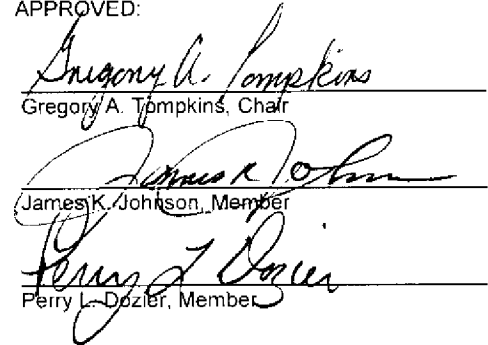 APPROVED:
Gregory A. Tompkins
Gregory A. Tompkins, Chair
James K Johnson
James K. Johnson, Member
Perry L Dozier
Perry L. Dozier, Member